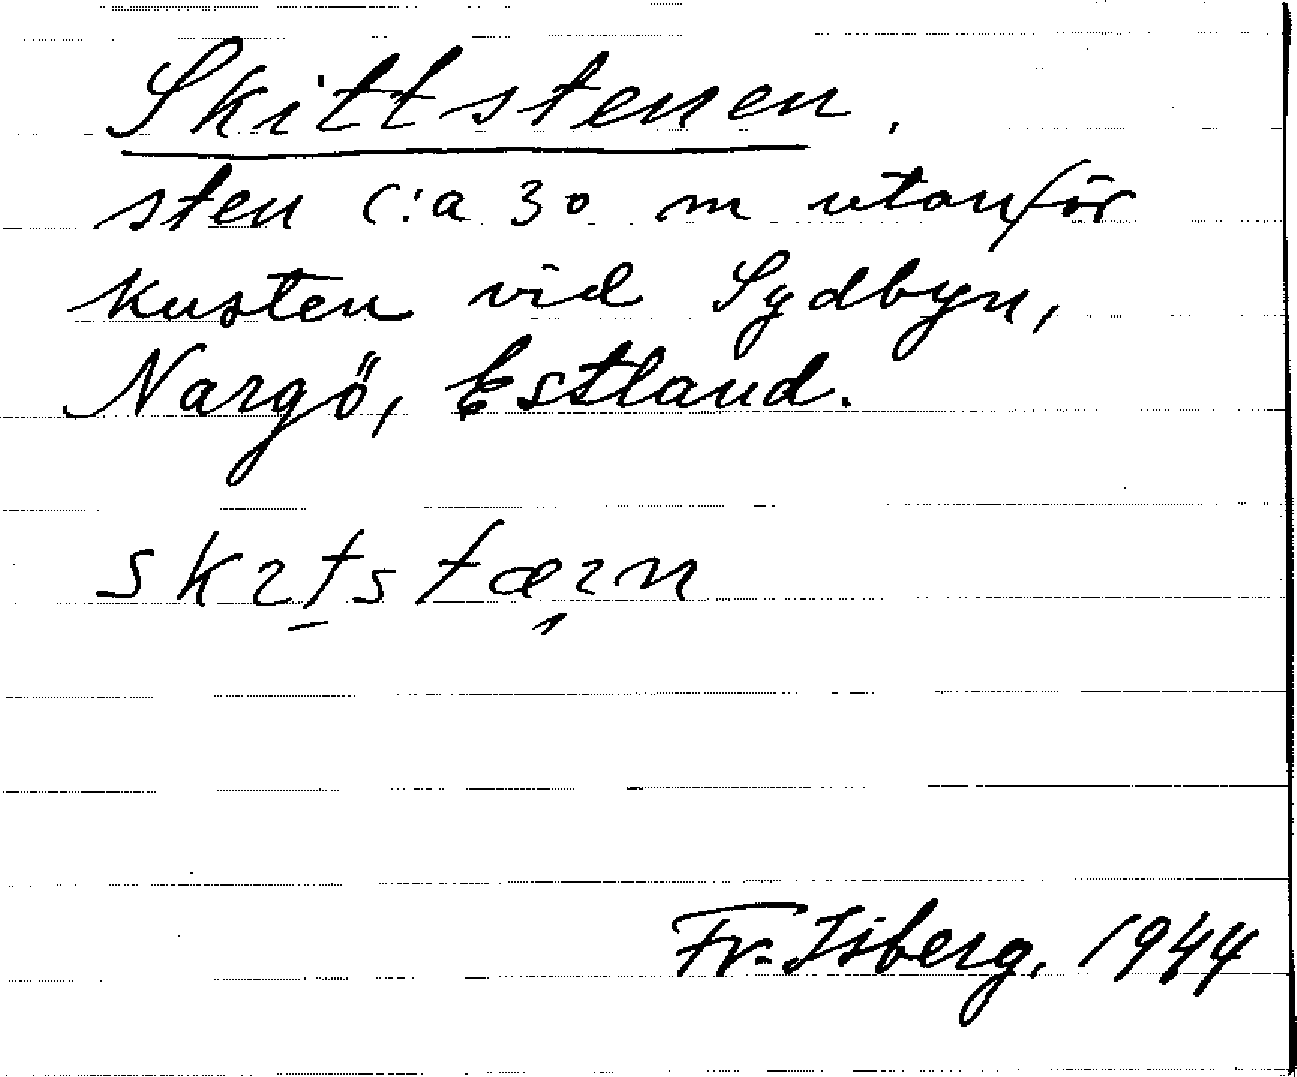 Skittstenen.
sten c:a 30 m utanför
kusten vid Sydbyn,
Nargö, Estland.
skɩtstæɩn
Fr. Isberg, 1944